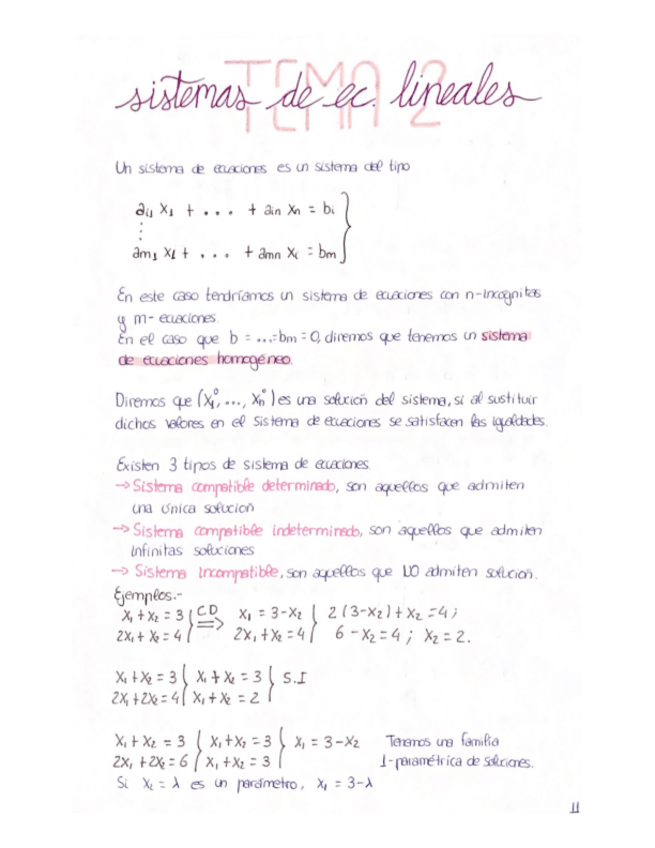 TEMA 2
sistemas de ec. lineales
Un sistema de ecuaciones es un sistema del tipo
a₁₁ x₁ + ... + a₁ₙ xₙ = b₁
⋮
aₘ₁ x₁ + ... + aₘₙ xᵢ = bₘ
En este caso tendríamos un sistema de ecuaciones con n-incognitas
y m- ecuaciones.
En el caso que b = ...=bₘ = 0, diremos que tenemos un sistema
de ecuaciones homogéneo.
Diremos que (x₁⁰, ..., xₙ⁰) es una solución del sistema, si al sustituir
dichos valores en el sistema de ecuaciones se satisfacen las igualdades.
Existen 3 tipos de sistema de ecuaciones
→ Sistema compatible determinado, son aquellos que admiten
una única solución
→ Sistema compatible indeterminado, son aquellos que admiten
infinitas soluciones
→ Sistema Incompatible, son aquellos que NO admiten solución.
Ejemplos.-
x₁ + x₂ = 3 } CD x₁ = 3-x₂ } 2(3-x₂)+x₂ = 4;
2x₁ + x₂ = 4 } ⇒ 2x₁ + x₂ = 4 } 6 - x₂ = 4; x₂ = 2.
x₁ + x₂ = 3 } x₁ + x₂ = 3 } S.I
2x₁ + 2x₂ = 4 } x₁ + x₂ = 2 }
x₁ + x₂ = 3 } x₁ + x₂ = 3 } x₁ = 3-x₂ Tenemos una familia
2x₁ + 2x₂ = 6 } x₁ + x₂ = 3 } 1-paramétrica de soluciones.
Si x₂ = λ es un parámetro, x₁ = 3-λ
11